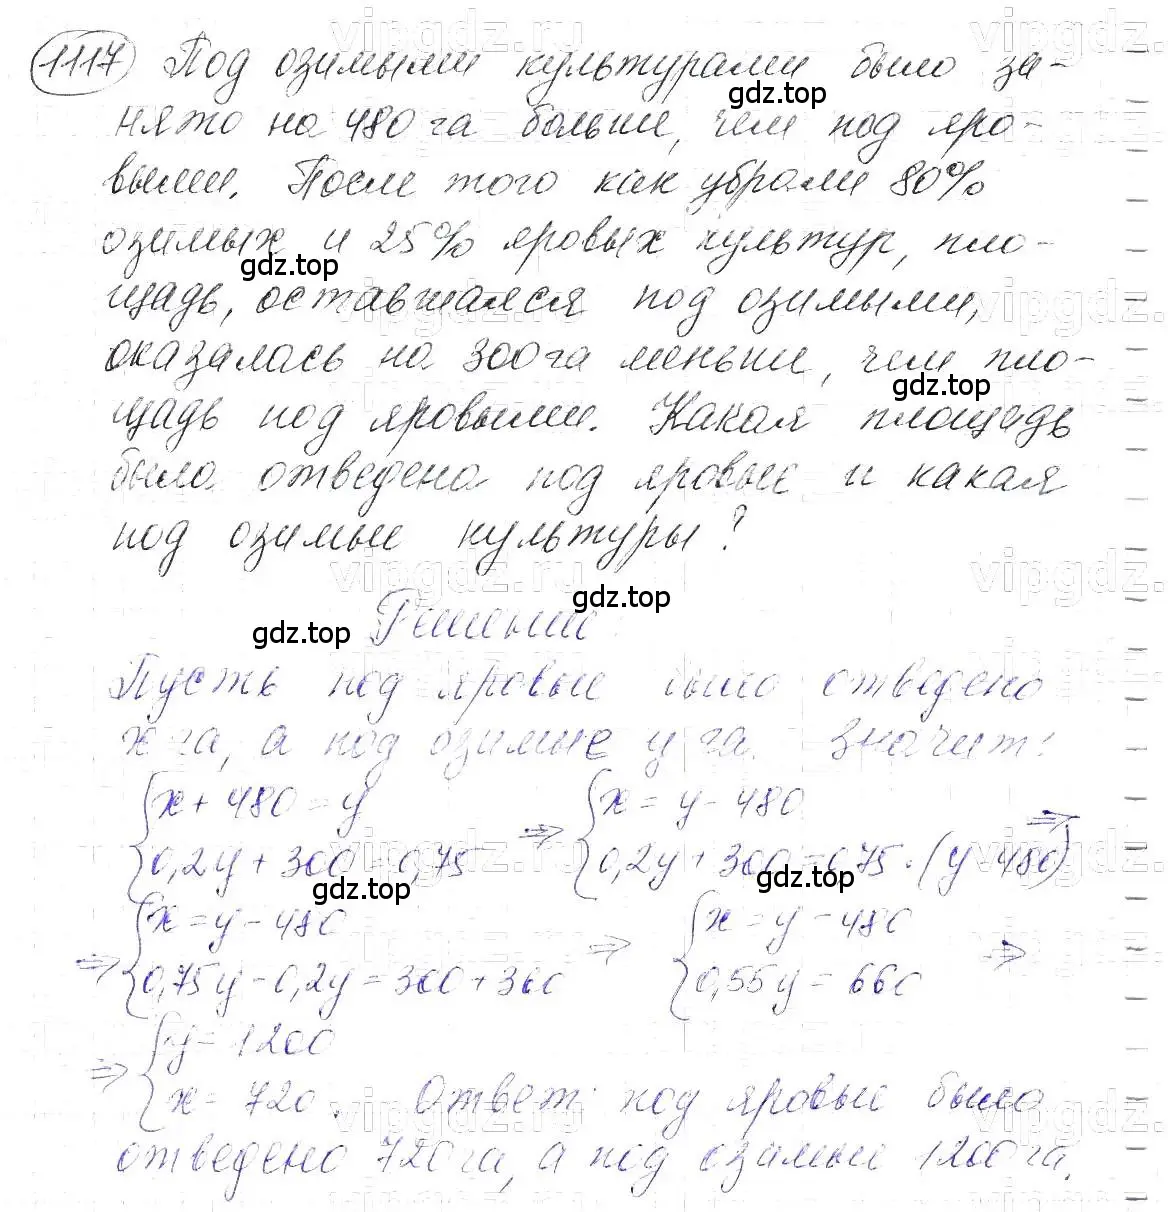 1117 Под озимыми культурами было за-
нято на 480 га больше, чем под яро-
выми. После того как убрали 80%
озимых и 25% яровых культур, пло-
щадь, оставшаяся под озимыми,
оказалась на 300 га меньше, чем пло-
щадь под яровыми. Какая площадь
была отведена под яровые и какая
под озимые культуры?
Решение:
Пусть под яровые было отведено
x га, а под озимые y га. Значит:
{x + 480 = y => {x = y - 480 =>
{0,2y + 300 = 0,75 {0,2y + 300 = 0,75 · (y - 480)
=> {x = y - 480 => {x = y - 480 =>
{0,75y - 0,2y = 300 + 360 {0,55y = 660
=> {y = 1200
{x = 720. Ответ: под яровые было
отведено 720 га, а под озимые 1200 га.
gdz.top
gdz.top
gdz.top
gdz.top
gdz.top
gdz.top
gdz.top
vipgdz.ru